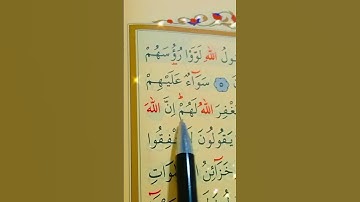 ولُ اللّٰهِ لَوَّوْا رُؤُسَهُمْ
۝٥ سَوَٓاءٌ عَلَيْهِمْ
غْفِرَ اللّٰهُ لَهُمْۜ اِنَّ اللّٰهَ
يَقُولُونَ نْفِقُوا
خَزَٓائِنُ وَاتِ